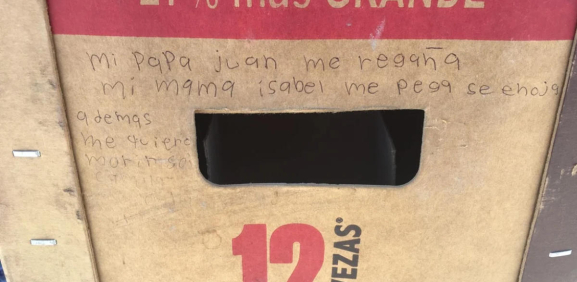 mas GRANDE
mi papa juan me regaña
mi mama isabel me pega se enoja
ademas
me quiere
12